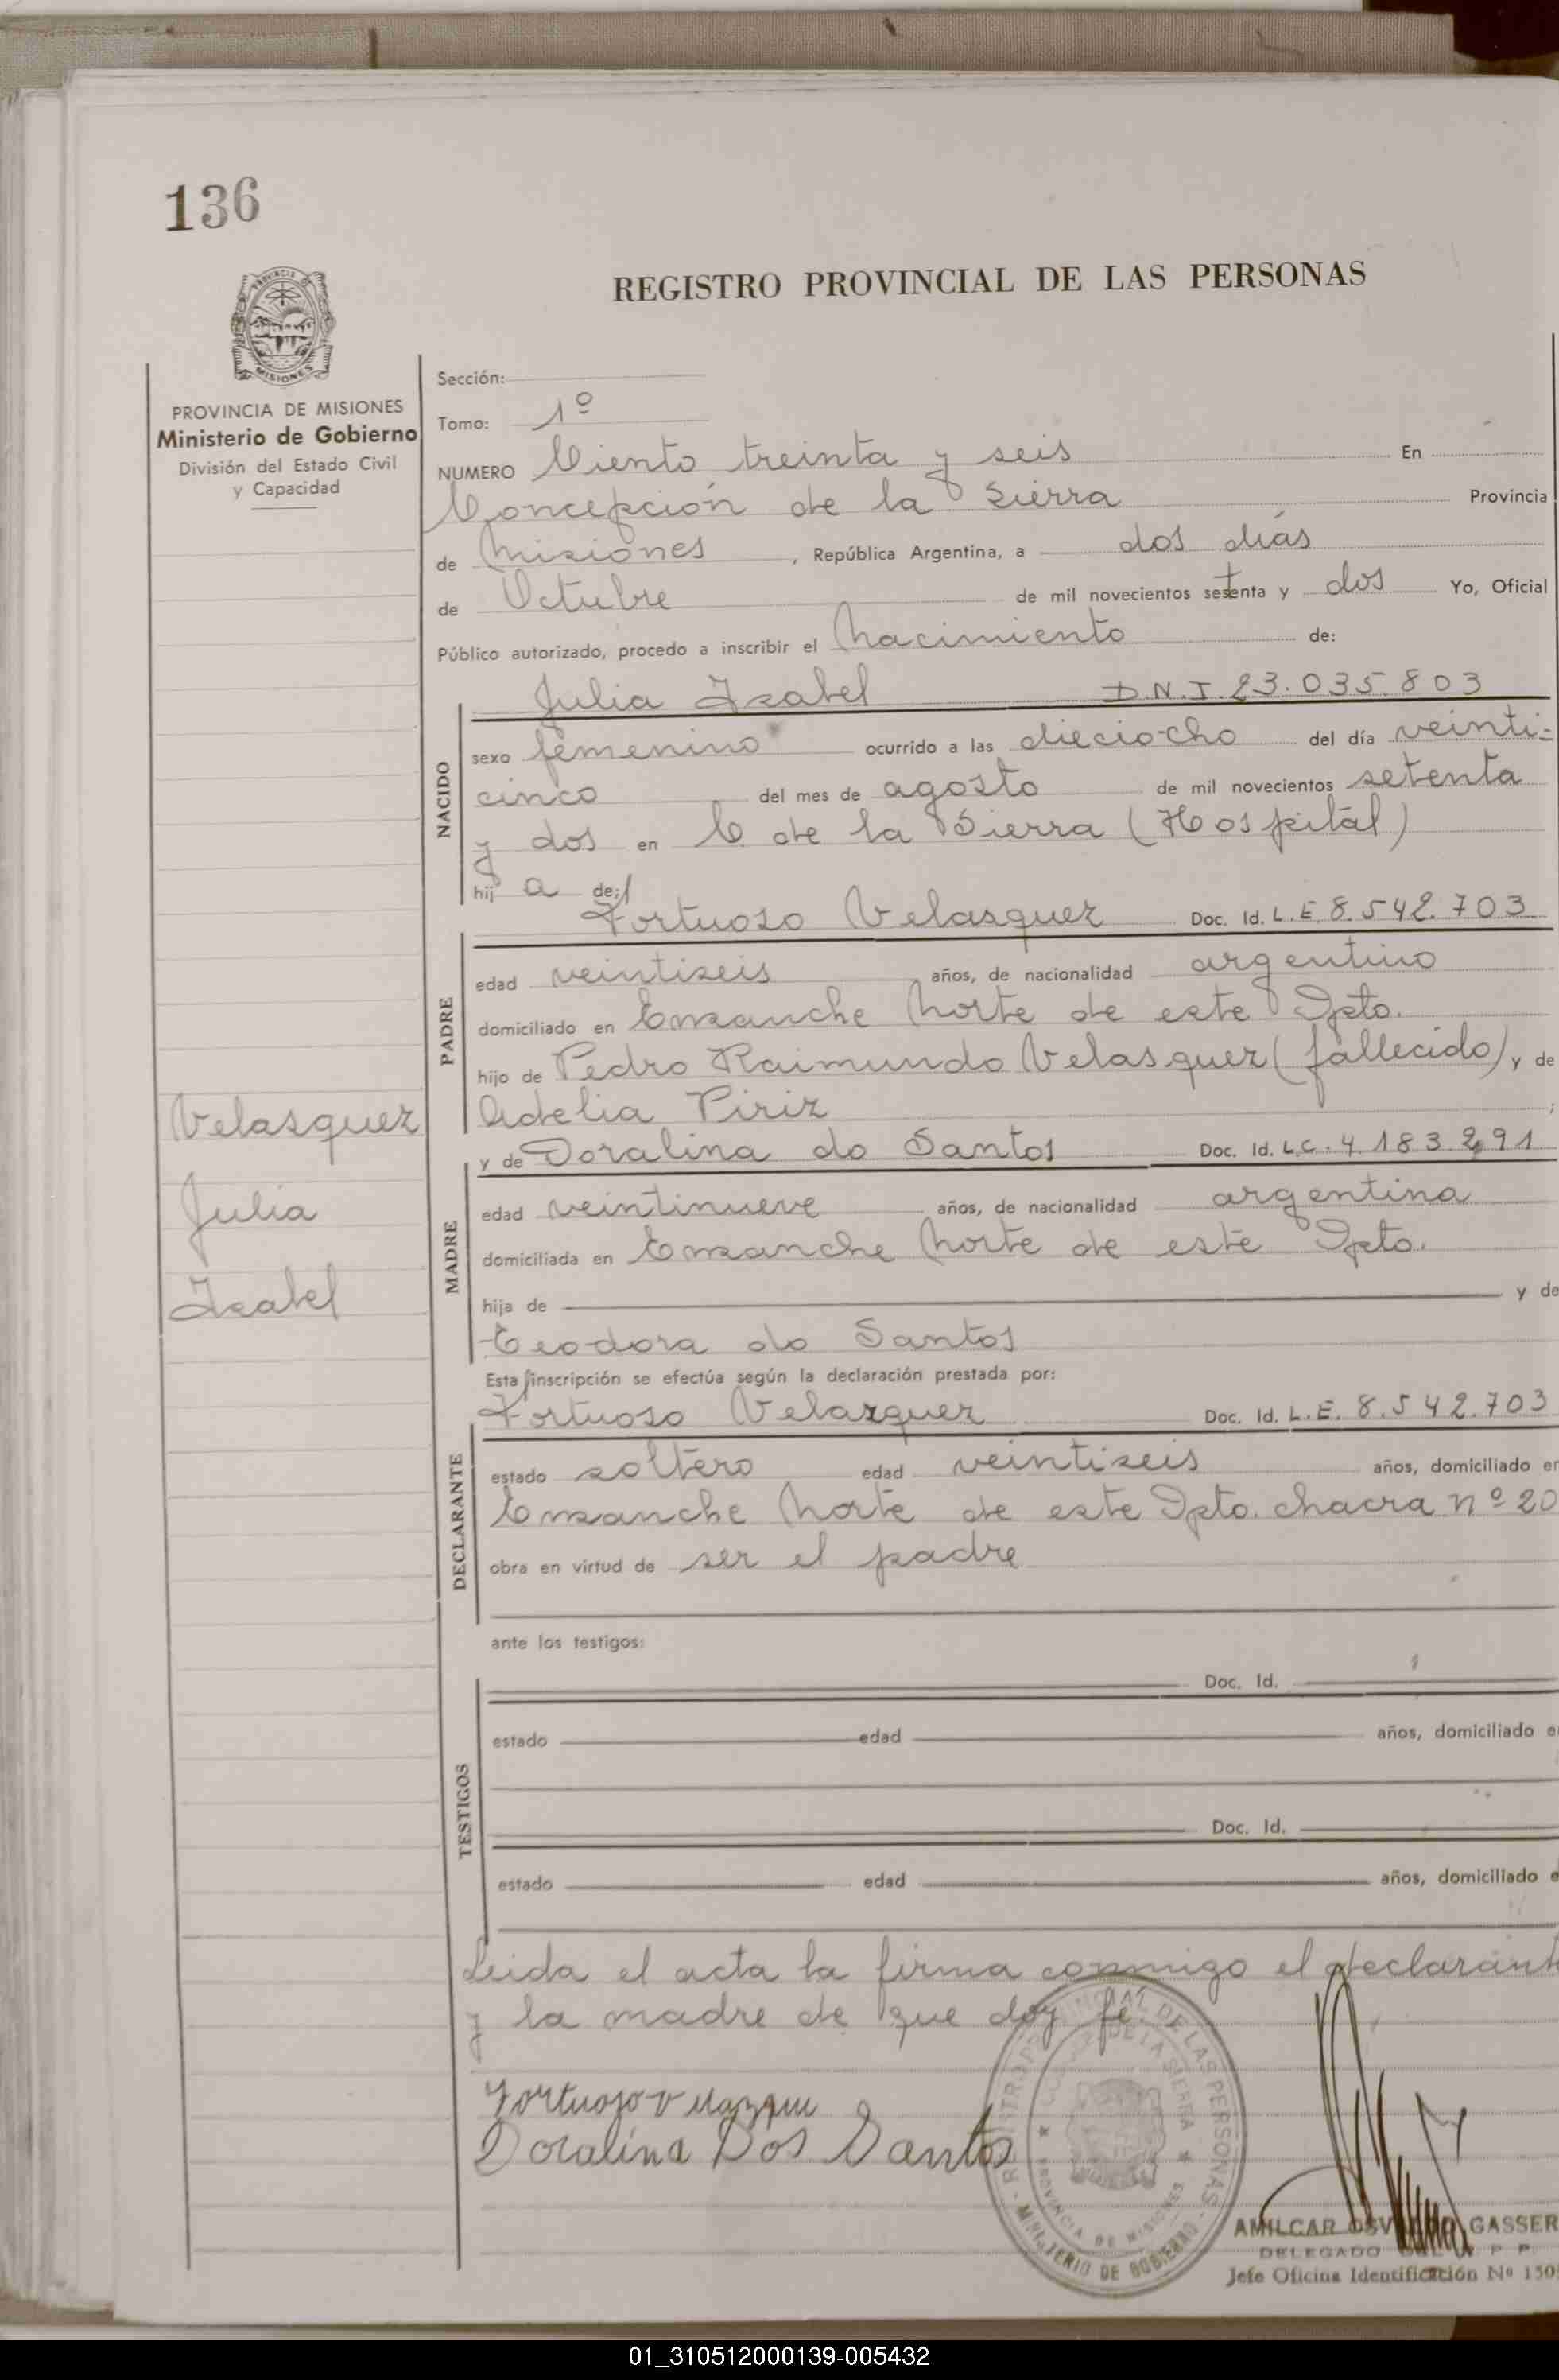 136
REGISTRO PROVINCIAL DE LAS PERSONAS
PROVINCIA DE MISIONES
Ministerio de Gobierno
División del Estado Civil
y Capacidad
Sección:
Tomo: 1º
NUMERO Ciento treinta y seis En
Concepción de la Sierra Provincia
de Misiones, República Argentina, a dos días
de Octubre de mil novecientos setenta y dos Yo, Oficial
Público autorizado, procedo a inscribir el Nacimiento de:
NACIDO
Julia Isabel D.N.I. 23.035.803
sexo femenino ocurrido a las dieciocho del día veinti-
cinco del mes de agosto de mil novecientos setenta
y dos en C. de la Sierra (Hospital)
hij a de:
PADRE
Fortuoso Velasquez Doc. Id. L.E. 8.542.703
edad veintiseis años, de nacionalidad argentino
domiciliado en Ensanche Norte de este Dpto.
hijo de Pedro Raimundo Velasquez (fallecido) y de
Adelia Piriz ;
Velasquez
Julia
Isabel
MADRE
y de Doralina do Santos Doc. Id. L.C. 4.183.291
edad veintinueve años, de nacionalidad argentina
domiciliada en Ensanche Norte de este Dpto.
hija de y de
Teodora do Santos
Esta inscripción se efectúa según la declaración prestada por:
DECLARANTE
Fortuoso Velazquez Doc. Id. L.E. 8.542.703
estado soltero edad veintiseis años, domiciliado en
Ensanche Norte de este Dpto. chacra nº 20
obra en virtud de ser el padre
ante los testigos:
TESTIGOS
Doc. Id.
estado edad años, domiciliado e
Doc. Id.
estado edad años, domiciliado e
Leida el acta la firma conmigo el declarant
y la madre de que doy fé.
Fortuoso
Doralina Dos Santos
REGISTRO PROVINCIAL DE LAS PERSONAS
PROVINCIA DE MISIONES
MINISTERIO DE GOBIERNO
AMILCAR GASSER
DELEGADO
Jefe Oficina Identificación Nº 150
01_310512000139-005432